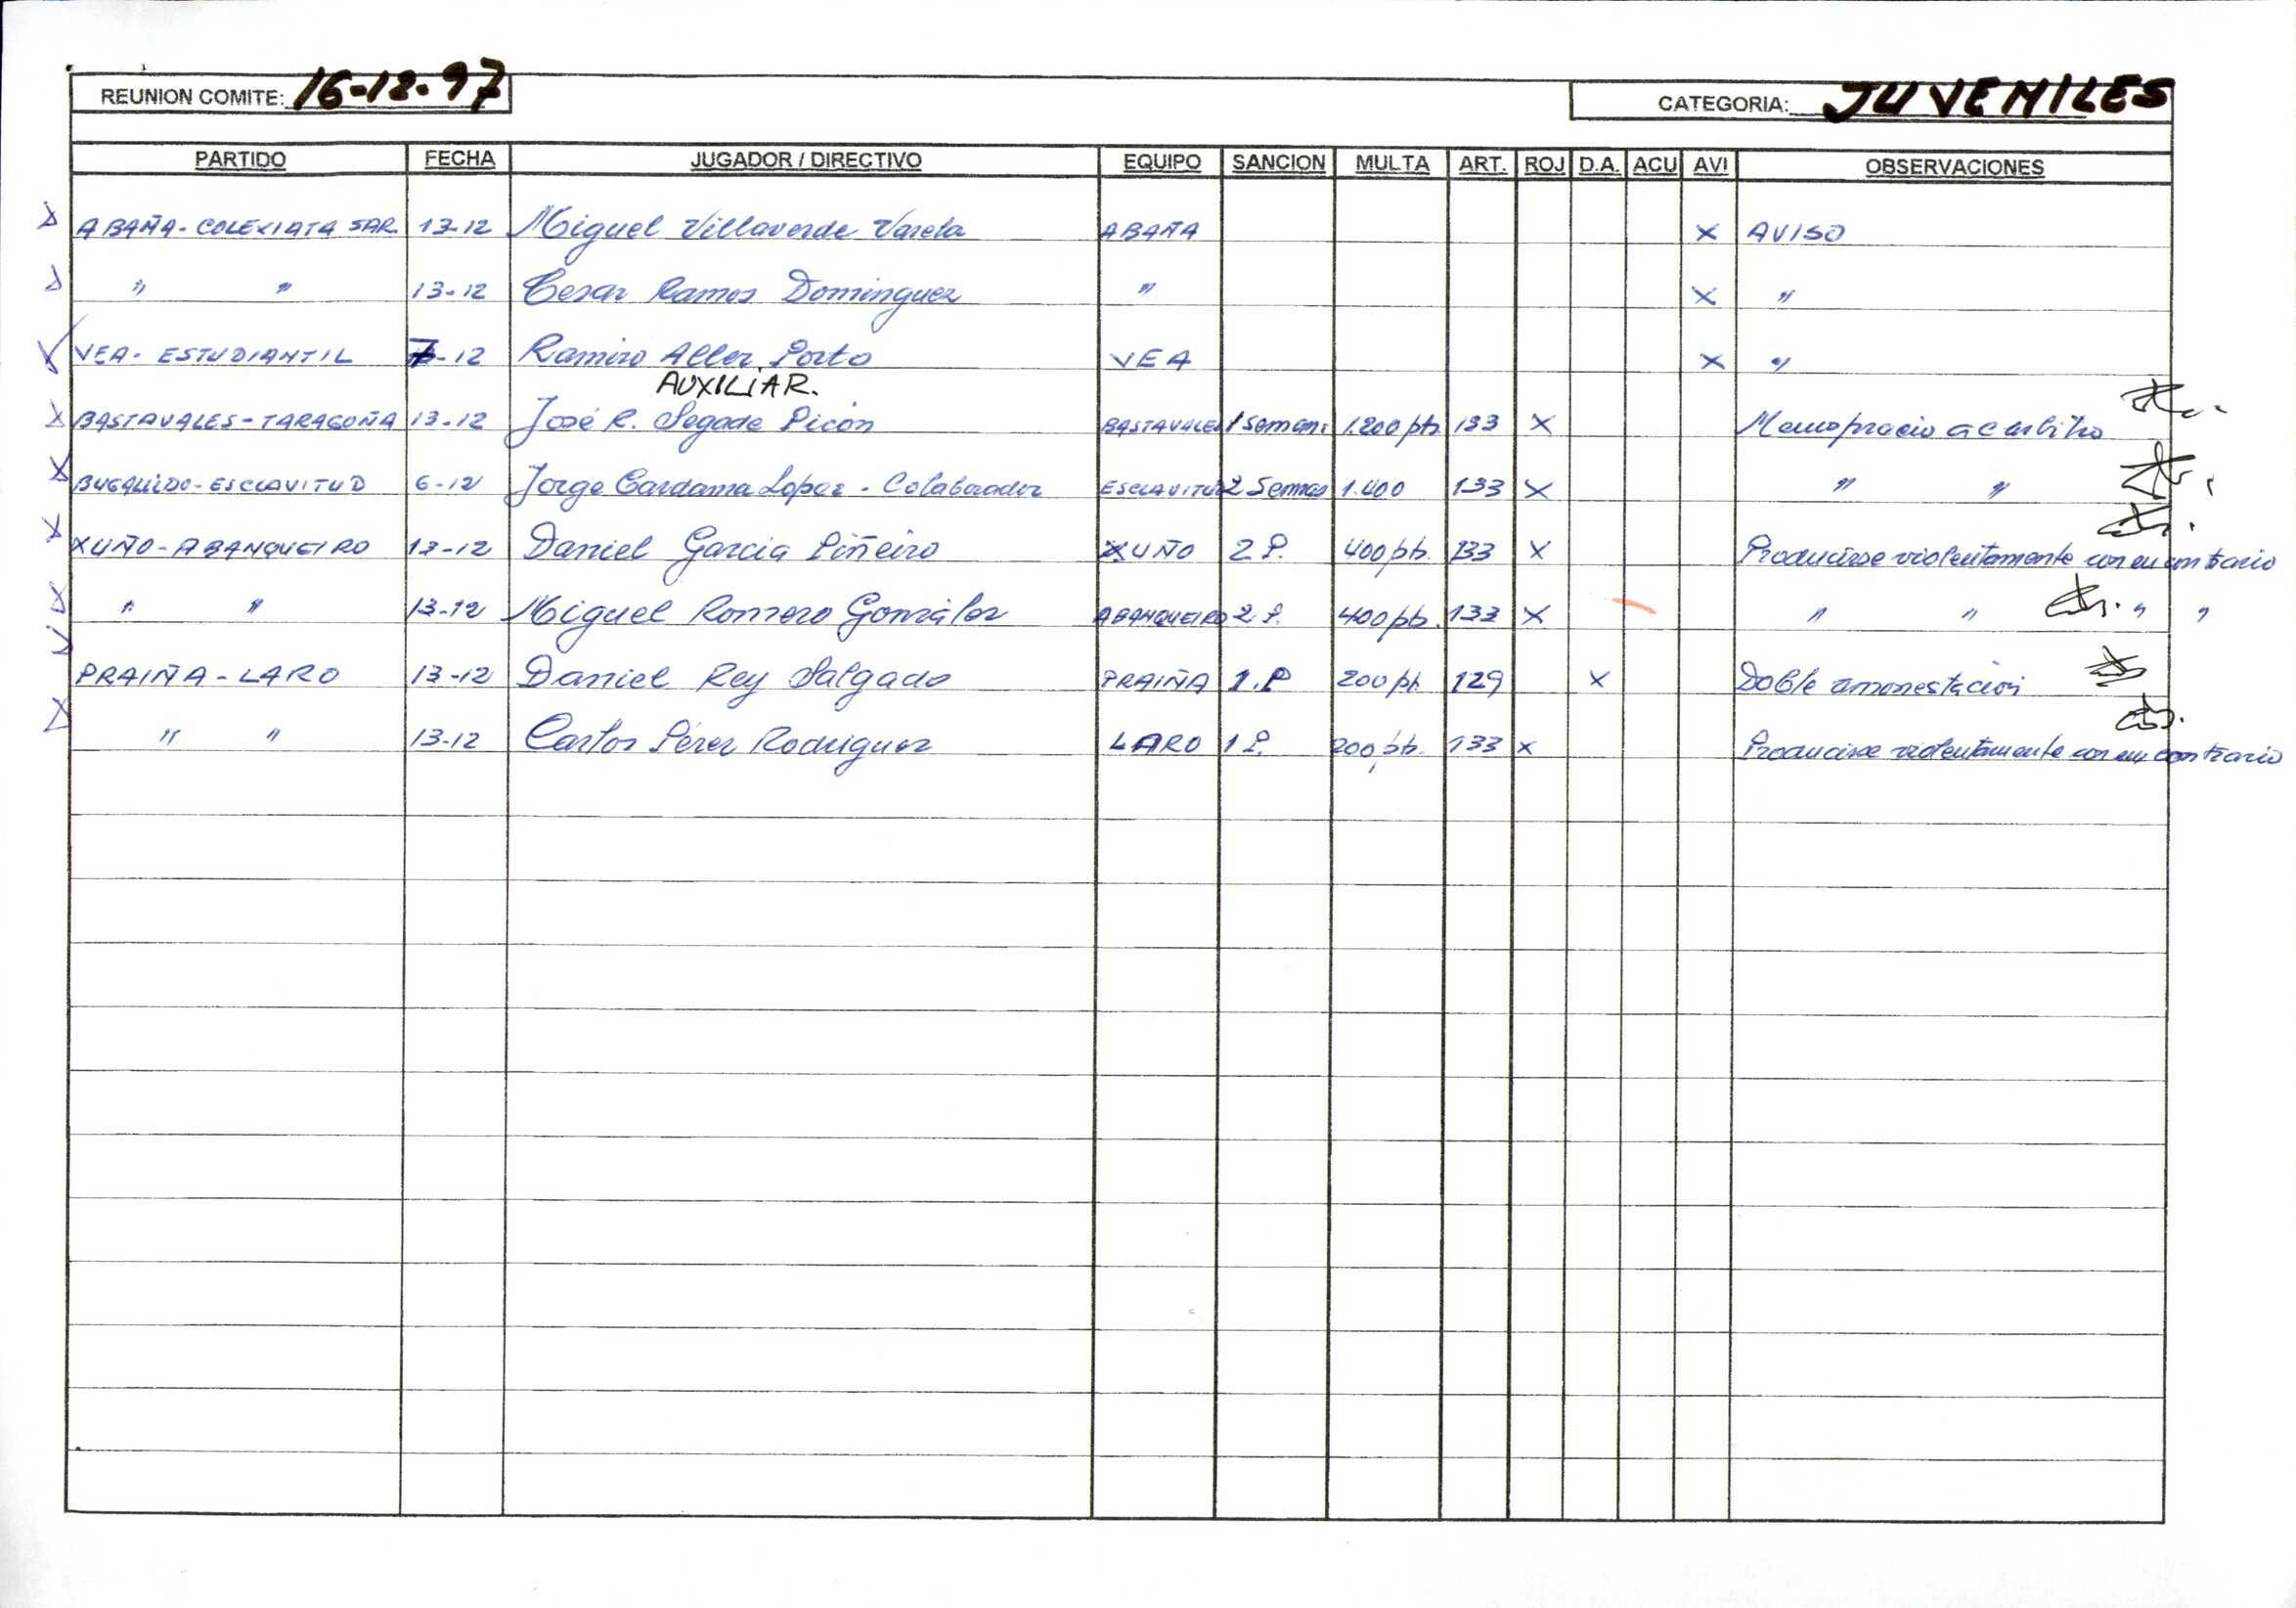 REUNION COMITE: 16-12-97 CATEGORIA: JUVENILES
PARTIDO FECHA JUGADOR / DIRECTIVO EQUIPO SANCION MULTA ART. ROJ D.A. ACU AVI OBSERVACIONES
ABAÑA - COLEXIATA SAR. 13-12 Miguel Villaverde Varela ABAÑA X AVISO
" " 13-12 Cesar Ramos Dominguez " X "
VEA - ESTUDIANTIL 7-12 Ramiro Aller Porto VEA X "
AUXILIAR.
BASTAVALES - TARAGOÑA 13-12 José R. Segade Picón BASTAVALES 1 Semana 1.200 pts 133 X Menosprecio al arbitro
BUGALLIDO - ESCLAVITUD 6-12 Jorge Cardama Lopez - Colaborador ESCLAVITUD 2 Semanas 1.400 133 X " "
XUÑO - ABANQUEIRO 13-12 Daniel Garcia Piñeiro XUÑO 2 P. 400 pts. 133 X Producirse violentamente con un contrario
" " 13-12 Miguel Romero González ABANQUEIRO 2 P. 400 pts. 133 X " " " "
PRAIÑA - LARO 13-12 Daniel Rey Salgado PRAIÑA 1.P 200 pts. 129 X Doble amonestación
" " 13-12 Carlos Pérez Rodriguez LARO 1 P. 200 pts. 133 X Producirse violentamente con un contrario